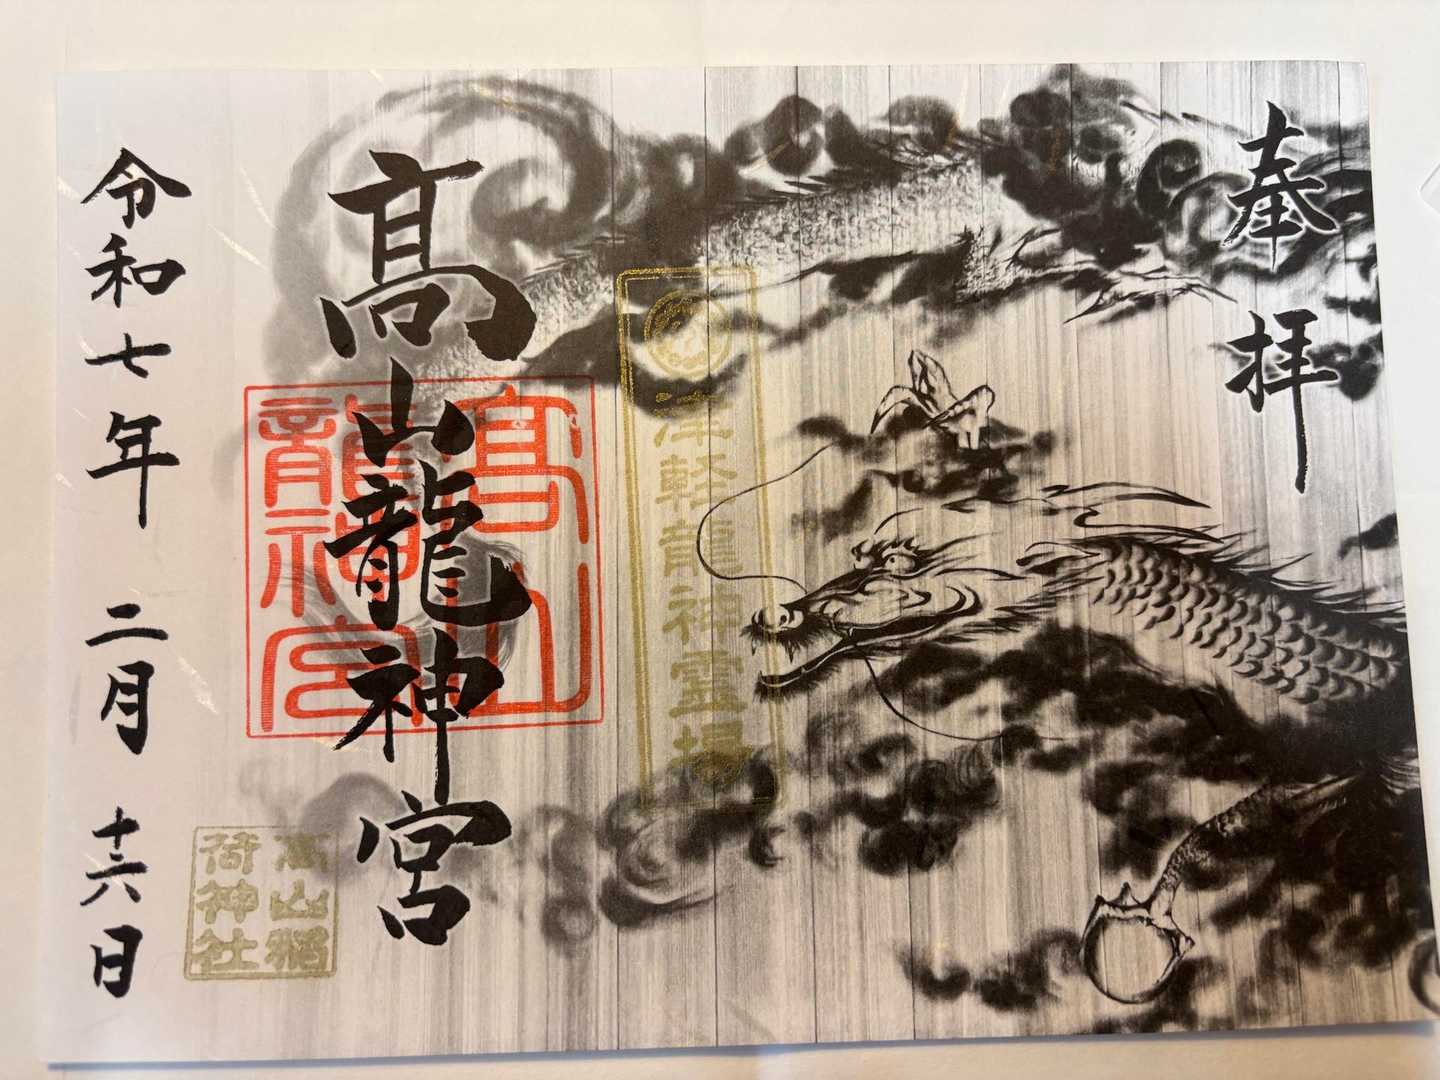 奉拝
津軽龍神霊場
髙山龍神宮
髙山
龍神宮
高山稲
荷神社
令和七年二月十六日